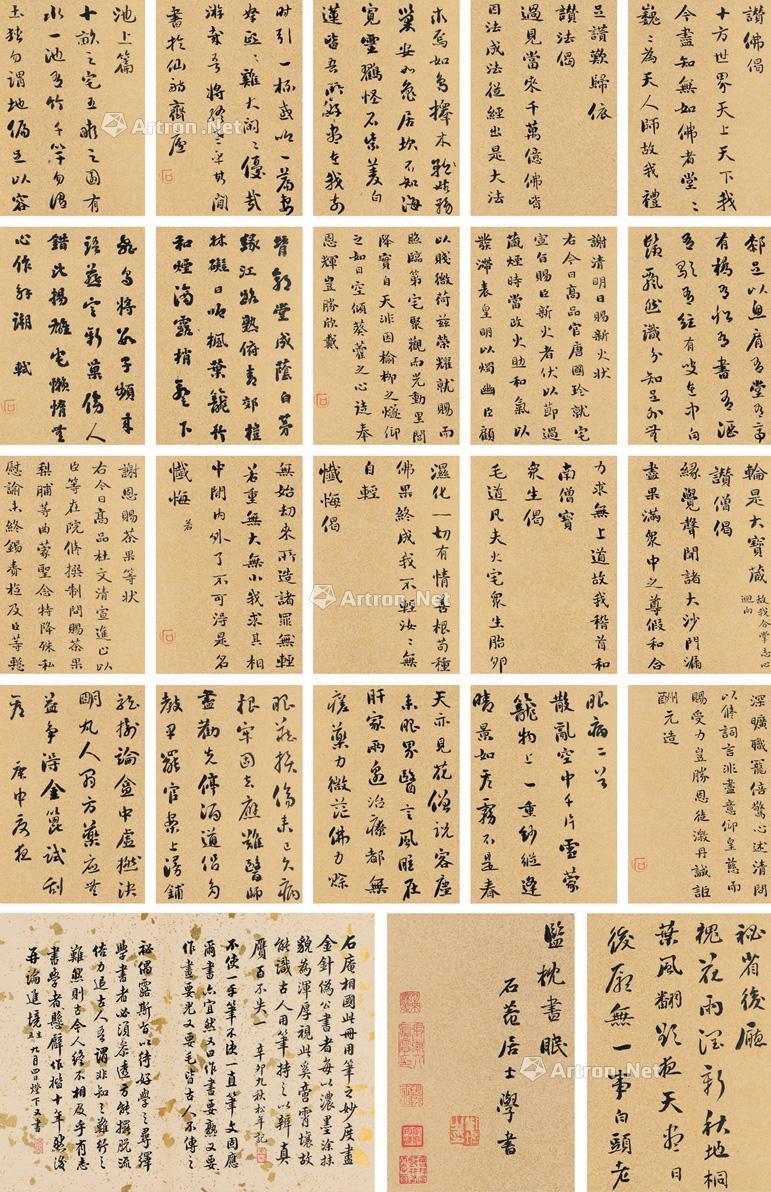 讚佛偈
十方世界天上天下我
今盡知無如佛者堂堂
巍巍為天人師故我禮
足讚歎歸依
讚法偈
過見當來千萬億佛皆
因法成法從經出是大法
木為如鳥擇木姑務
巢安如龜居坎不知海
寬靈鶴怪石紫菱白
蓮皆吾所好盡在我前
時引一杯或吟一篇妻
孥熙熙雞犬閒閒優哉
游哉吾將終老乎其間
書於仙舫齋壁
池上篇
十畝之宅五畝之園有
水一池有竹千竿勿謂
土狹勿謂地偏足以容
足以息肩有堂有亭
有橋有船有書有酒
有歌有絃有叟在中白
鬚飄然識分知足外無
謝清明日賜新火狀
右今日高品官唐國珍就宅
宣旨賜臣新火者伏以節過
藏煙時當改火助和氣以
發滯表皇明以燭幽臣顧
以賤微荷茲榮耀就賜而
照臨第宅聚觀而光動里閭
降實自天非因榆柳之燧仰
之如日空傾葵藿之心徒奉
恩輝豈勝欣戴
背郭堂成蔭白茅
緣江路熟俯青郊榿
林礙日吟楓葉籠竹
和煙滴露梢暫下
飛烏將數子頻來
語燕定新巢傍人
錯比揚雄宅懶惰無
心作解潮 軾
輪是大寶藏 故我合掌志心迴向
讚僧偈
緣覺聲聞諸大沙門漏
盡果滿眾中之尊假和合
力求無上道故我稽首和
南僧寶
眾生偈
毛道凡夫火宅眾生胎卵
濕化一切有情善根苟種
佛果終成我不輕汝汝無
自輕
懺悔偈
無始劫來所造諸罪無輕
若重無大無小我求其相
中間內外了不可得是名
懺悔 若
謝恩賜茶果等狀
右今日高品杜文清宣進止以
臣等在院修撰制問賜茶果
梨脯等曲蒙聖念特降殊私
慰諭未終錫賚旋及臣等慙
深曠職寵倍驚心述清問
以修詞言非盡意仰皇慈而
賜受力豈勝恩徒激丹誠詎
酬元造
眼病二首
散亂空中千片雪蒙
籠物上一重紗縱逢
晴景如看霧不是春
天亦見花僧說客塵
來眼界醫言風眩在
肝家兩邊治療都無
瘥藥力微茫佛力賒
眼藏損傷來已久病
根牢固去應難醫師
盡勸先停酒道侶多
教早罷官案上漫鋪
龍樹論盒中虛撚決
明丸人間方藥應無
益爭得金篦試刮
看 庚申
秘省後廳
槐花雨潤新秋地桐
葉風翻欲夜天盡日
後廳無一事白頭老
監枕書眠
石菴居士學書
石庵相國此冊用筆之妙度盡
金針偽公書者每以濃墨塗抹
貌為渾厚視此奚啻霄壤故
能識古人用筆持之以辨真
贋百不失一 辛卯九秋松年記
不使一手筆不使一直筆文固應
爾書亦宜然又曰作書要熟又要
生作畫要光又要毛皆古人不傳之
秘偶露斯旨以待好學之尋繹
學書者必須參透方能擺脫流
俗力追古人吾謂非知之難行之
難然則古今人終不相及乎有志
書學者懸臂作楷十年然後
再論進境 九月四日燈下又書
Artron.Net